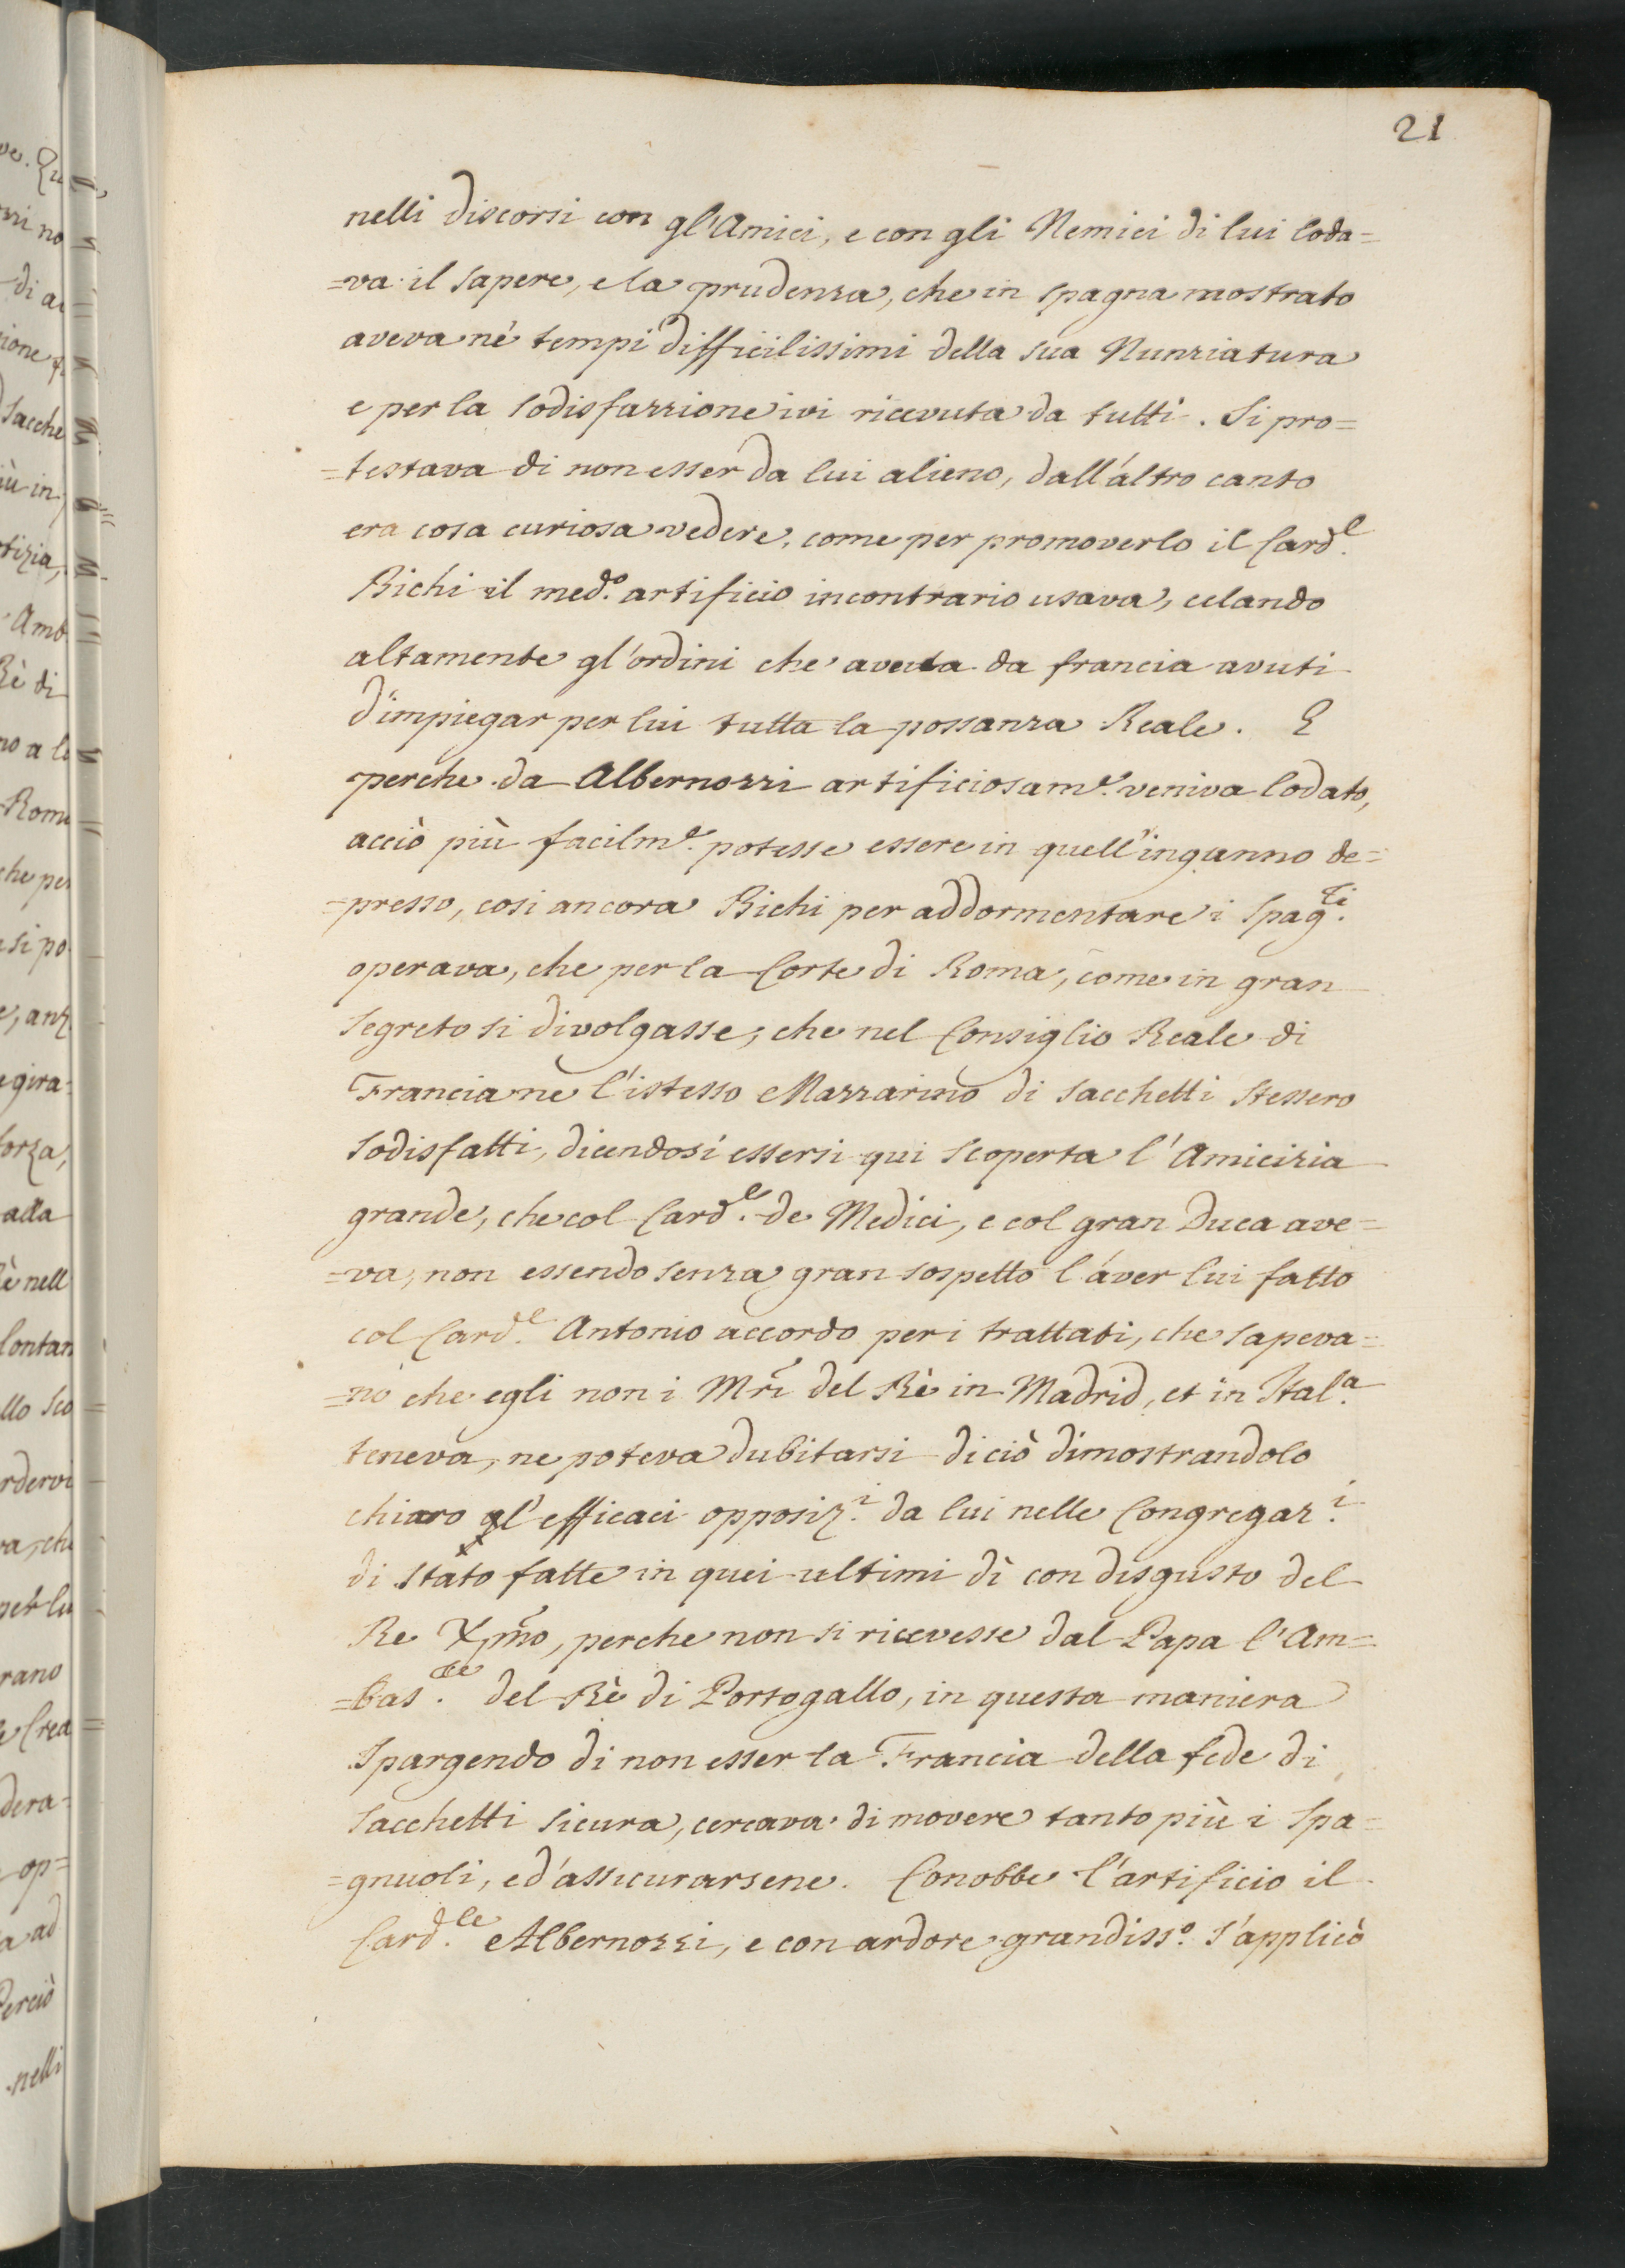 21
nelli discorsi con gl'Amici, e con gli Nemici di lui loda=
=va il sapere, e la prudenza, che in spagna mostrato
aveva nè tempi difficilissimi della sua Nunziatura
e per la sodisfazzione ivi ricevuta da tutti. Si pro=
=testava di non esser da lui alieno, dall'altro canto
era cosa curiosa vedere, come per promoverlo il Card.e
Bichi il med.o artificio incontrario usava, celando
altamente gl'ordini che aveva da francia avuti
d'impiegar per lui tutta la possanza Reale. E
perche da Albernozzi artificiosam.e veniva lodato,
acciò più facilm.e potesse essere in quell'inganno de=
=presso, cosi ancora Bichi per addormentare i Spag.li
operava, che per la Corte di Roma, come in gran
segreto si divolgasse, che nel Consiglio Reale di
Francia nè l'istesso Mazzarino di Sacchetti stessero
sodisfatti, dicendosi essersi qui scoperta l'Amicizia
grande, che col Card.e de Medici, e col gran Duca ave=
=va, non essendo senza gran sospetto l'aver lui fatto
col Card.e Antonio accordo per i trattati, che sapeva=
=no che egli non i Mri del Rè in Madrid, et in Ital.a
teneva, ne poteva dubitarsi di ciò dimostrandolo
chiaro gl'efficaci opposiz.i da lui nelle Congregaz.i
di stato fatte in quei ultimi dì con disgusto del
Re Xpmo, perche non si ricevesse dal Papa l'Am=
=bas.re del Rè di Portogallo, in questa maniera
spargendo di non esser la Francia della fede di
Sacchetti sicura, cercava di movere tanto più i Spa=
=gnuoli, ed'assicurarsene. Conobbe l'artificio il
Card.le Albernozzi, e con ardore grandiss.o s'applicò